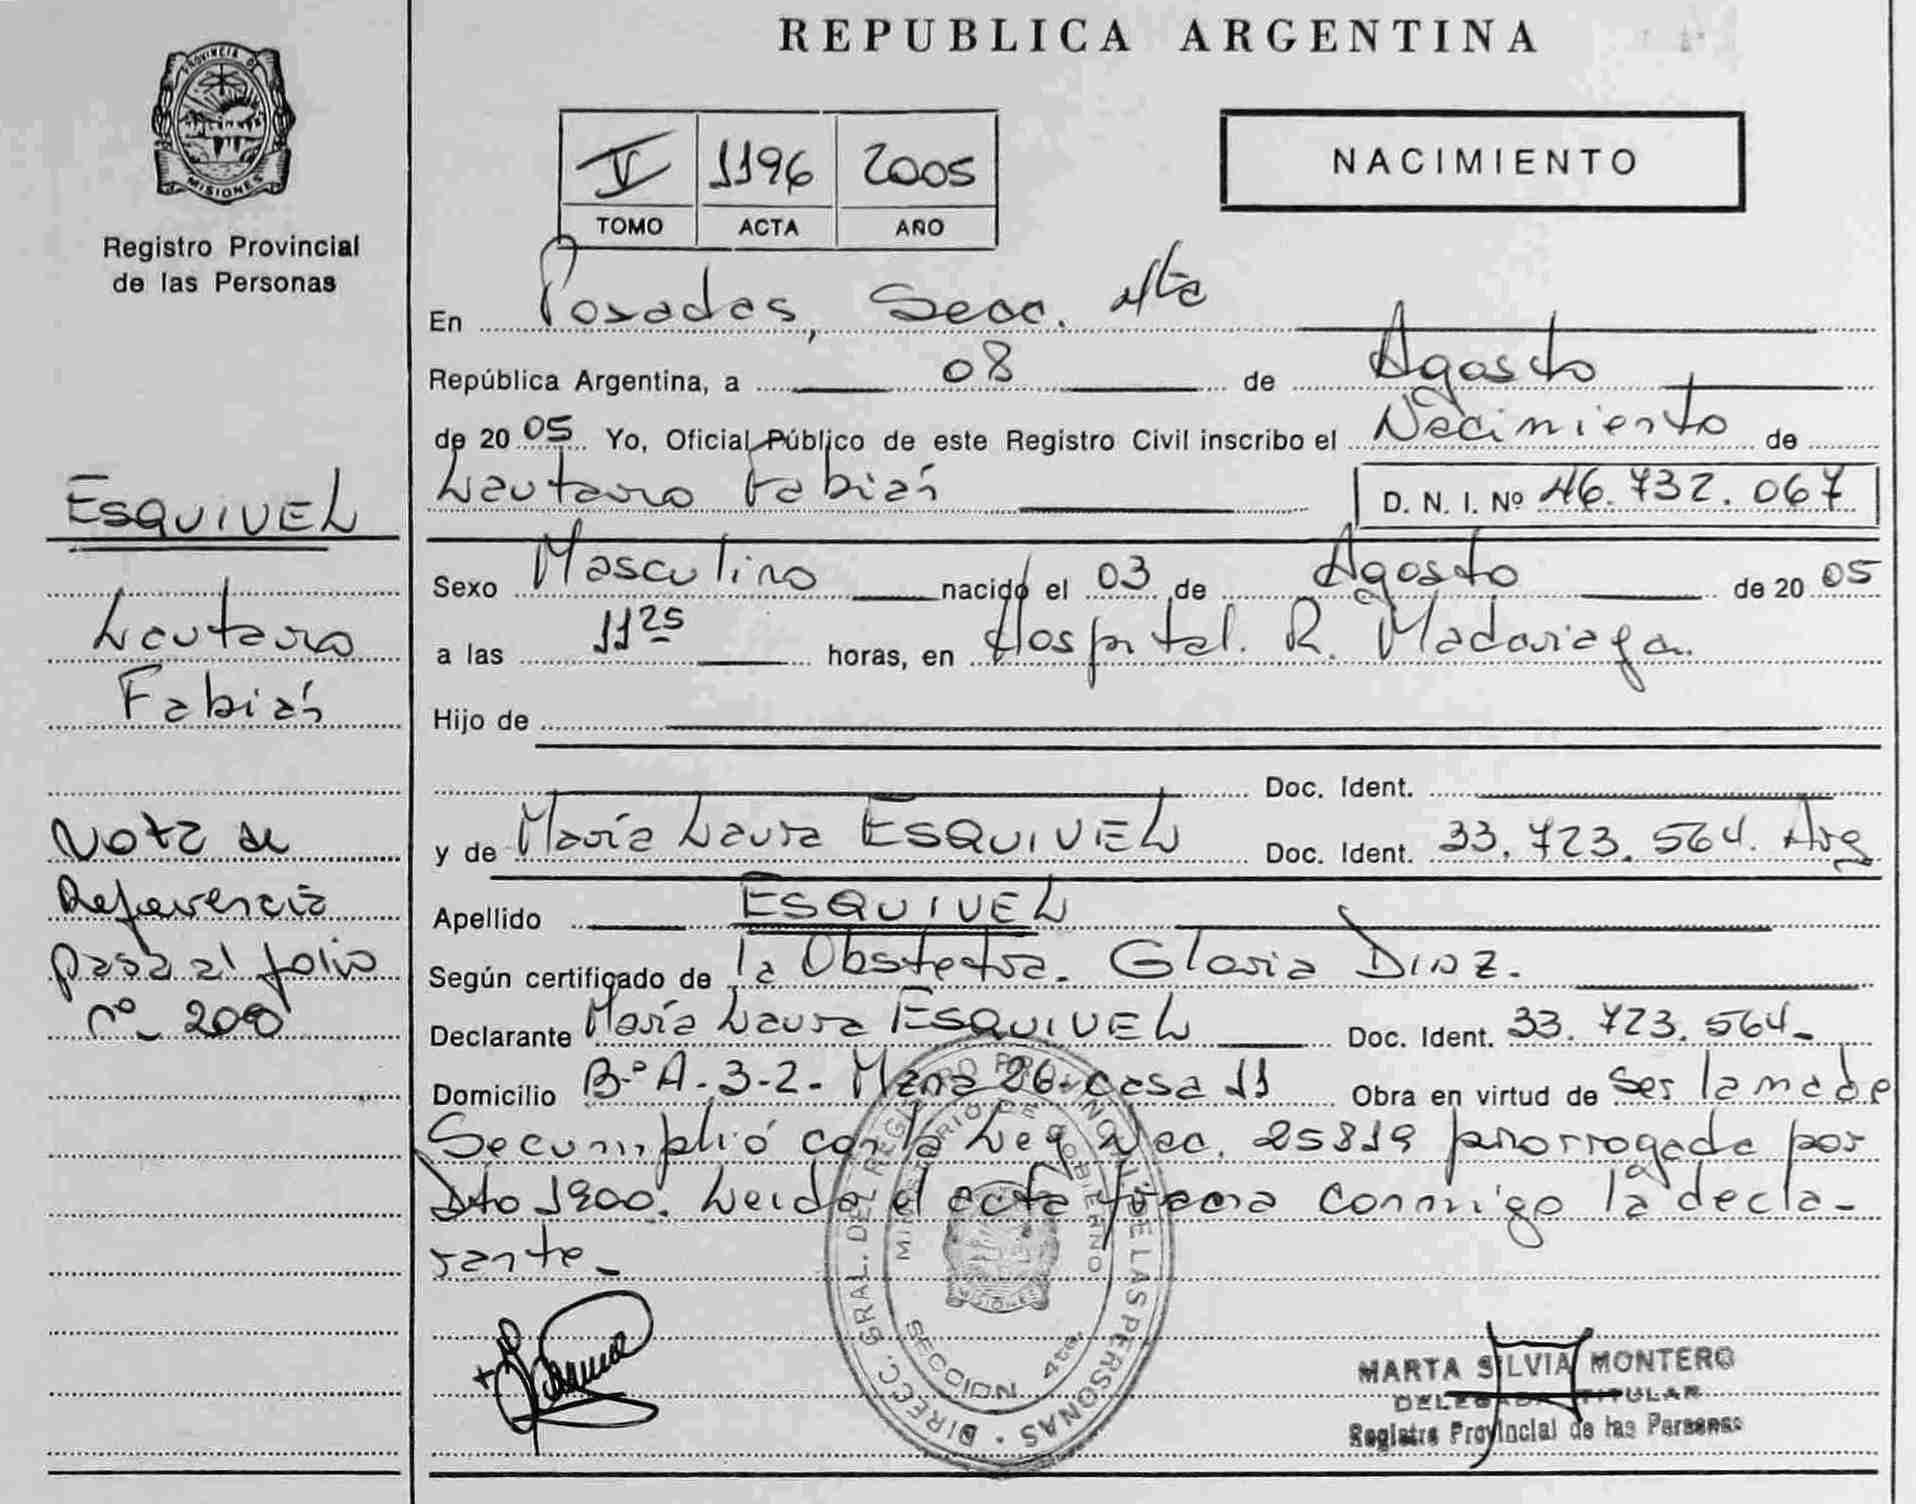 REPUBLICA ARGENTINA
PROVINCIA DE
MISIONES
Registro Provincial
de las Personas
V 1196 2005
TOMO ACTA AÑO
NACIMIENTO
En Posadas, Secc. 4ta
República Argentina, a 08 de Agosto
de 2005 Yo, Oficial Público de este Registro Civil inscribo el Nacimiento de
Lautaro Fabián D. N. I. Nº 46.732.067
ESQUIVEL
Lautaro
Fabián
Sexo Masculino nacido el 03 de Agosto de 2005
a las 11 25 horas, en Hospital. R. Madariaga.
Hijo de
Doc. Ident.
y de María Laura ESQUIVEL Doc. Ident. 33.723.564. Arg
Apellido ESQUIVEL
Según certificado de la Obstetra. Gloria DIAZ.
Declarante María Laura ESQUIVEL Doc. Ident. 33.723.564
Domicilio B.º A-3-2- Mzna 26- casa 11 Obra en virtud de ser la madre
Se cumplió con la Ley Nac. 25819 prorrogada por
Dto 1900. Leida el acta firma conmigo la decla-
rante
Nota de
Referencia
pasa al folio
nº 200
DIRECC. GRAL. DEL REGISTRO PROVINCIAL DE LAS PERSONAS
MINISTERIO DE GOBIERNO
SECCION 4ta.
MARTA SILVIA MONTERO
DELEGADA TITULAR
Registro Provincial de las Personas